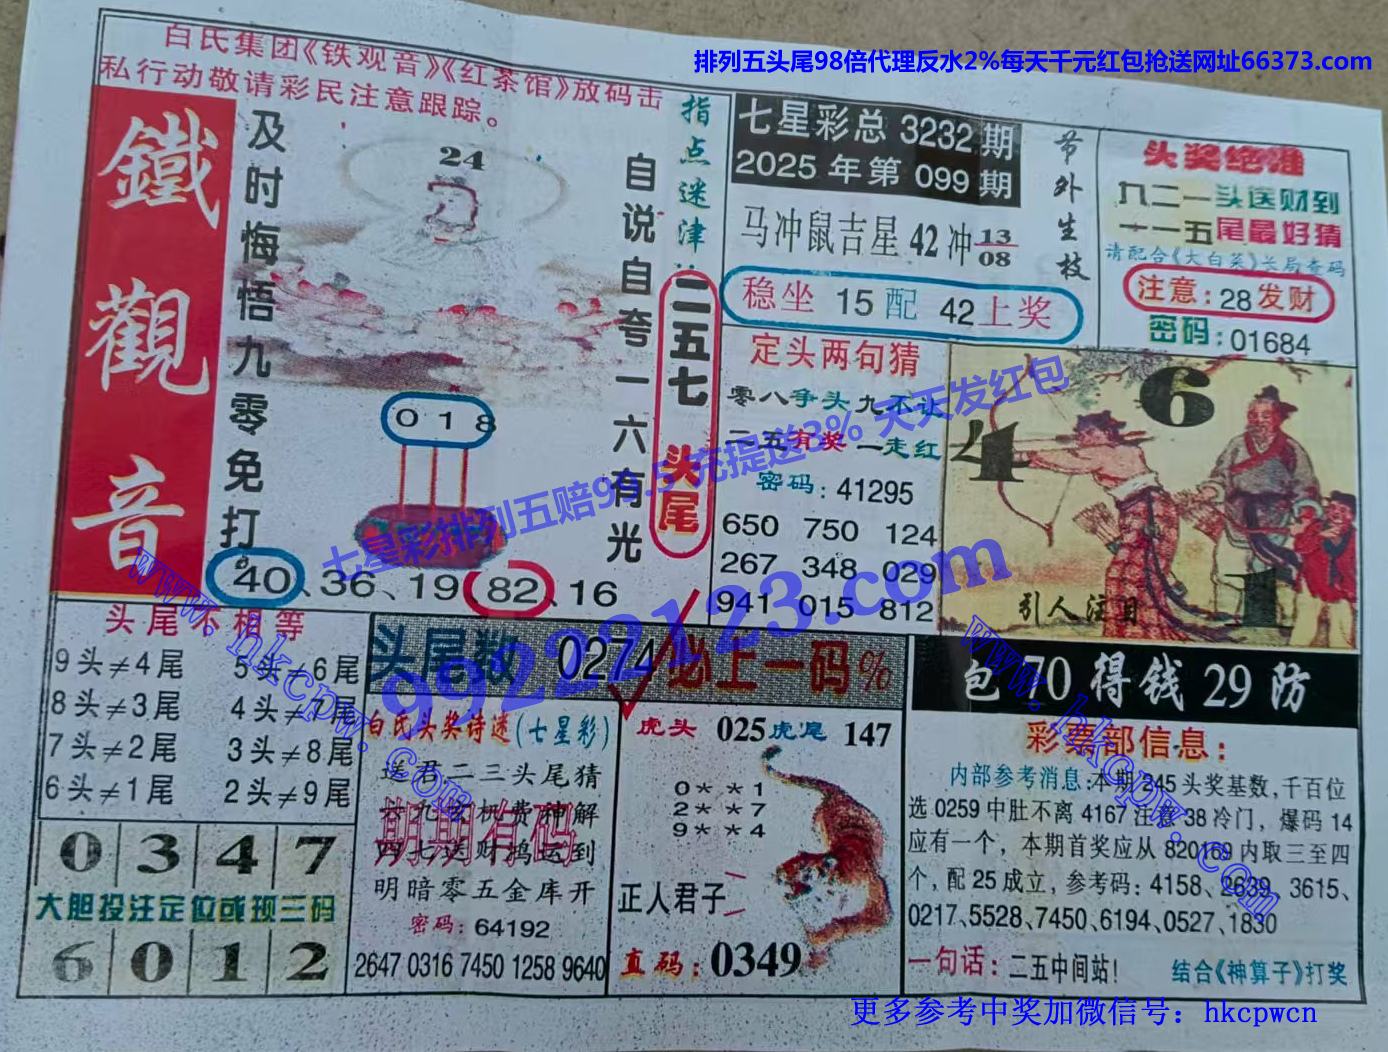 排列五头尾98倍代理反水2%每天千元红包抢送网址66373.com
白氏集团《铁观音》《红茶馆》放码击
私行动敬请彩民注意跟踪。
鐵觀音
及时悔悟九零免打
24
018
自说自夸一六有光
指点迷津:
二五七 头尾
40、36、19、82、16
七星彩总 3232 期
2025 年第 099 期
马冲鼠吉星 42 冲 13
08
稳坐 15 配 42 上奖
节外生枝
头奖绝准
九二一头送财到
一一五尾最好猜
请配合《大白菜》长局查码
注意:28发财
密码:01684
定头两句猜
零八争头九不让
二五有奖一走红
密码:41295
650 750 124
267 348 029
941 015 812
4
6
1
引人注目
七星彩排列五赔99.5 充提送3% 天天发红包
9922123.com
www.hkcpw.com
www.hkcpw.com
头尾不相等
9头≠4尾 5头≠6尾
8头≠3尾 4头≠7尾
7头≠2尾 3头≠8尾
6头≠1尾 2头≠9尾
0 3 4 7
大胆投注定位或现三码
6 0 1 2
头尾数 0274 必上一码%
白氏头奖诗谜(七星彩)
送君二三头尾猜
六九玄机费神解
四七送财鸿运到
明暗零五金库开
期期有码
密码:64192
2647 0316 7450 1258 9640
虎头 025 虎尾 147
0**1
2**7
9**4
正人君子
直码:0349
包 70 得钱 29 防
彩票部信息:
内部参考消息:本期245头奖基数,千百位
选0259中肚不离4167注意38冷门,爆码14
应有一个,本期首奖应从820169内取三至四
个,配25成立,参考码:4158、2639、3615、
0217、5528、7450、6194、0527、1830
一句话:二五中间站!
结合《神算子》打奖
更多参考中奖加微信号:hkcpwcn